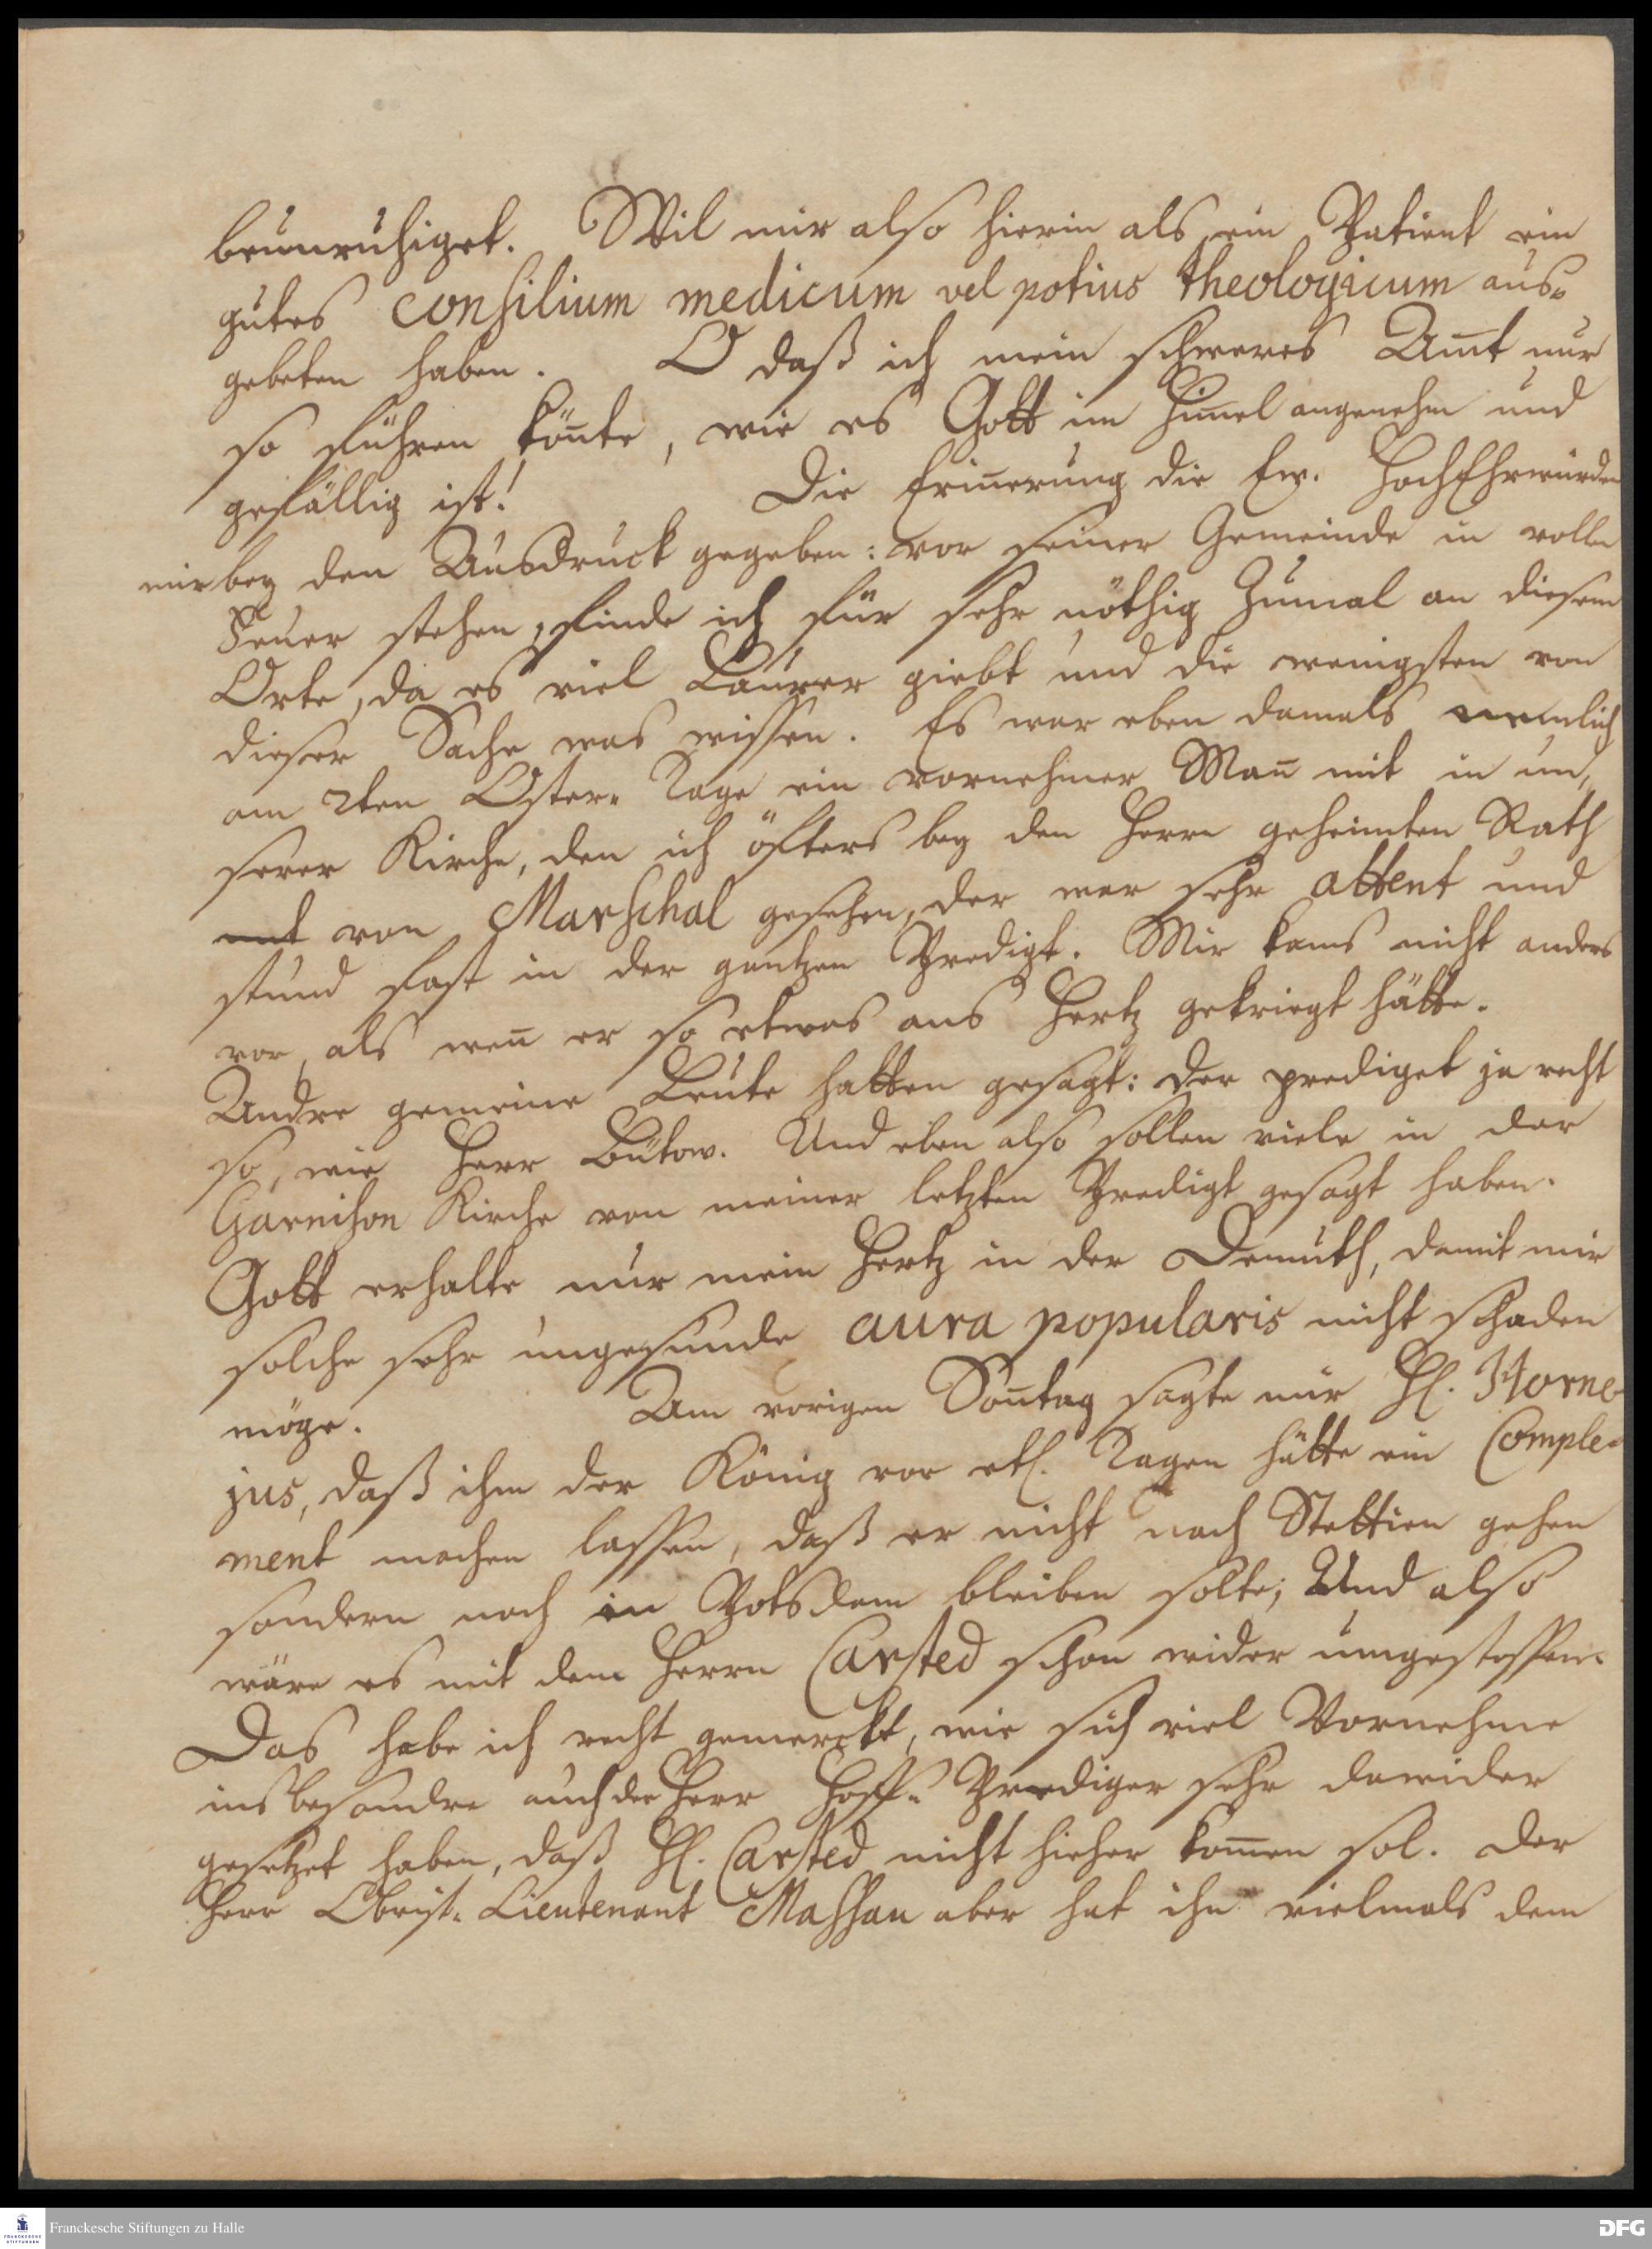 beunruhiget. Wil mir also hierin als ein Patient ein
gutes consilium medicum vel potius theologicum aus-
gebeten haben. O daß ich mein schweres Am̅t nur
so führen kön̅te, wie es Gott im Him̅el angenehm und
gefällig ist! Die Erin̅erung die Ew. HochEhrwürden
mir bey den Ausdruck gegeben: vor seiner Gemeinde in vollen
Feuer stehen, finde ich für sehr nöthig zumal an diesem
Orte, da es viel Laurer giebt und die wenigsten von
dieser Sache was wissen. Es war eben damals nemlich
am 2ten Oster- Tage ein vornehmer Man̅ mit in un-
serer Kirche, den ich öfters bey den Herrn geheimten Rath
von Marschal gesehen, der war sehr attent und
stund fast in der gantzen Predigt. Mir kams nicht anders
vor, als wen̅ er so etwas ans Hertz gekriegt hätte.
Andre gemeine Leute hatten gesagt: der prediget ja recht
so, wie Herr Bütow. Und eben also sollen viele in der
Garnison Kirche von meiner letzten Predigt gesagt haben.
Gott erhalte nur mein Hertz in der Demuth, damit mir
solche sehr ungesunde aura popularis nicht schaden
möge. Am vorigen Son̅tag sagte mir H. Horne
jus, daß ihm der König vor etl. Tagen hätte ein Comple-
ment machen lassen, daß er nicht nach Stettien gehen
sondern noch in Potsdam bleiben solte; Und also
wäre es mit dem Herrn Carsted schon wider umgestossen.
Das habe ich recht gemerckt, wie sich viel Vornehme
insbesondre auch der Herr Hoff- Prediger sehr dawider
gesetzet haben, daß H. Carsted nicht hieher kom̅en sol. Der
Herr Obrist- Lieutenant Massau aber hat ihn vielmals dem
Franckesche Stiftungen zu Halle
DFG